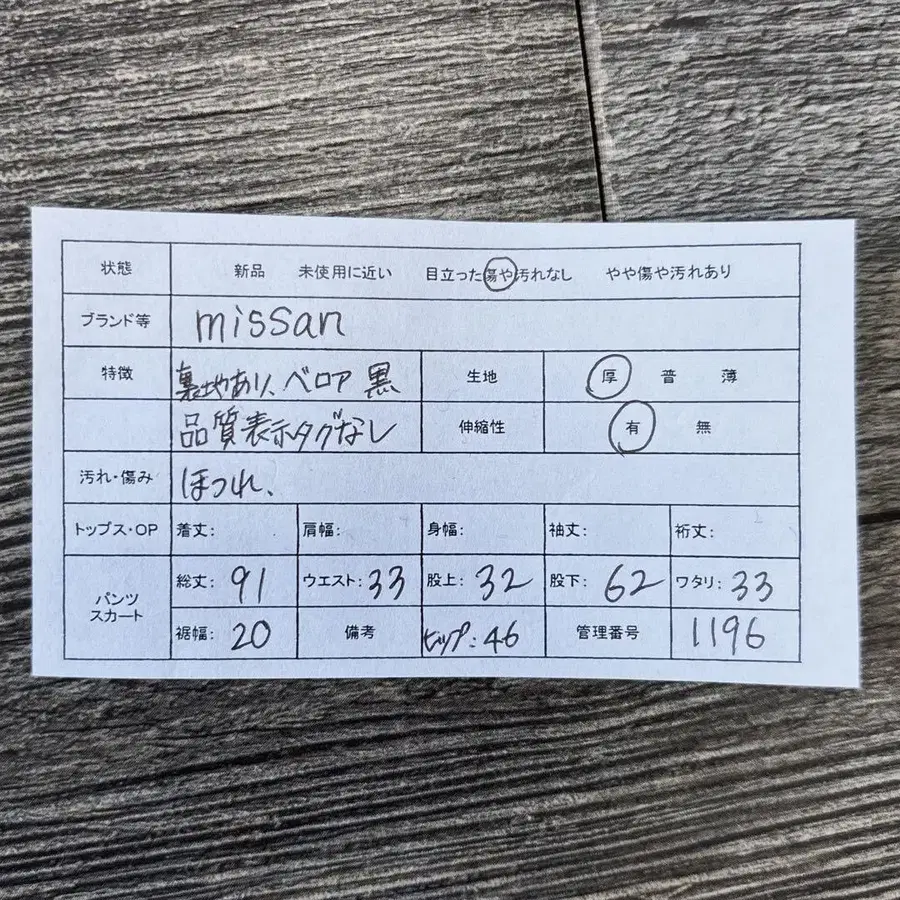 状態 新品 未使用に近い 目立った傷や汚れなし やや傷や汚れあり
ブランド等 missan
特徴 裏地あり、ベロア 黒 生地 厚 普 薄
品質表示タグなし 伸縮性 有 無
汚れ・傷み ほつれ、
トップス・OP 着丈: 肩幅: 身幅: 袖丈: 裄丈:
パンツ スカート 総丈: 91 ウエスト: 33 股上: 32 股下: 62 ワタリ: 33
裾幅: 20 備考 ヒップ: 46 管理番号 1196